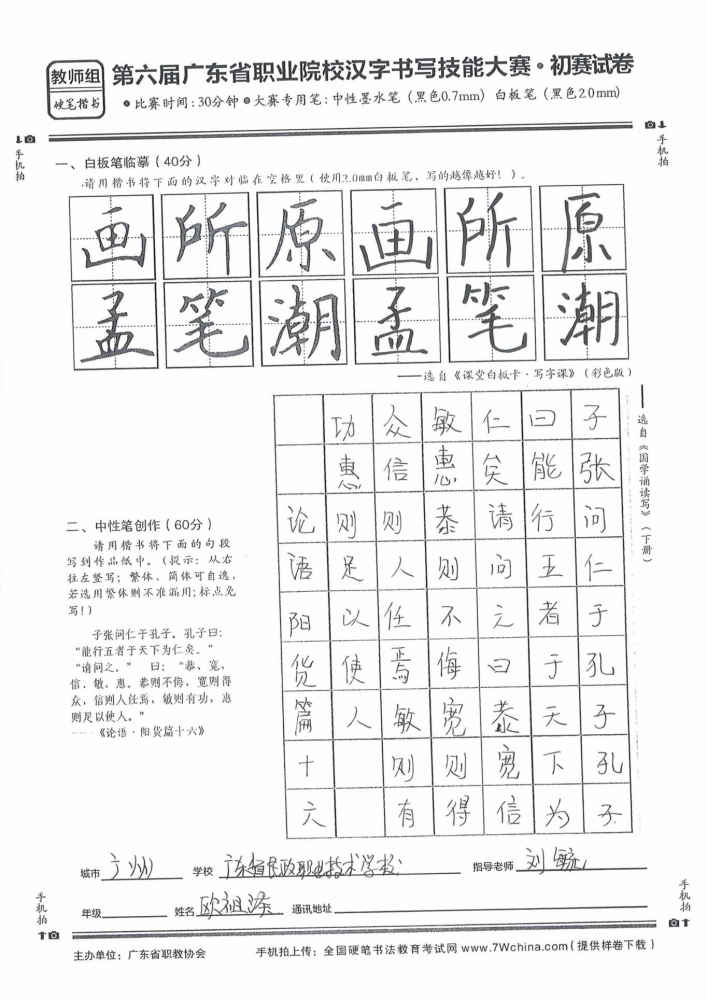 教师组
硬笔楷书
第六届广东省职业院校汉字书写技能大赛·初赛试卷
●比赛时间:30分钟 ●大赛专用笔:中性墨水笔(黑色0.7mm) 白板笔(黑色2.0mm)
手机拍
手机拍
一、白板笔临摹(40分)
请用楷书将下面的汉字对临在空格里(使用2.0mm白板笔,写的越像越好!)。
画所原画所原
孟笔潮孟笔潮
——选自《课堂白板卡·写字课》(彩色版)
选自《国学诵读写》(下册)
子张问仁于孔子孔子
曰能行五者于天下为
仁矣请问之曰恭宽信
敏惠恭则不侮宽则得
众信则人任焉敏则有
功惠则足以使人
论语阳货篇十六
二、中性笔创作(60分)
请用楷书将下面的句段
写到作品纸中。(提示:从右
往左竖写;繁体、简体可自选,
若选用繁体则不准漏用;标点免
写!)
子张问仁于孔子。孔子曰:
“能行五者于天下为仁矣。”
“请问之。” 曰:“恭、宽、
信、敏、惠。恭则不侮,宽则得
众,信则人任焉,敏则有功,惠
则足以使人。”
——《论语·阳货篇十六》
城市 广州 学校 广东省民政职业技术学校 指导老师 刘毓
年级 姓名 欧祖泽 通讯地址
手机拍
手机拍
主办单位:广东省职教协会 手机拍上传:全国硬笔书法教育考试网 www.7Wchina.com(提供样卷下载)